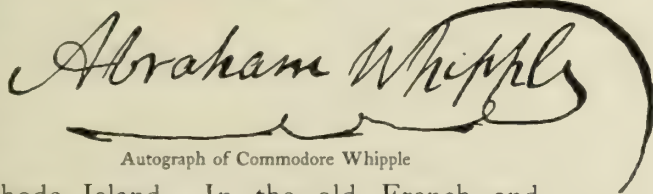 Abraham Whipple
Autograph of Commodore Whipple
hode Island. In the old French and